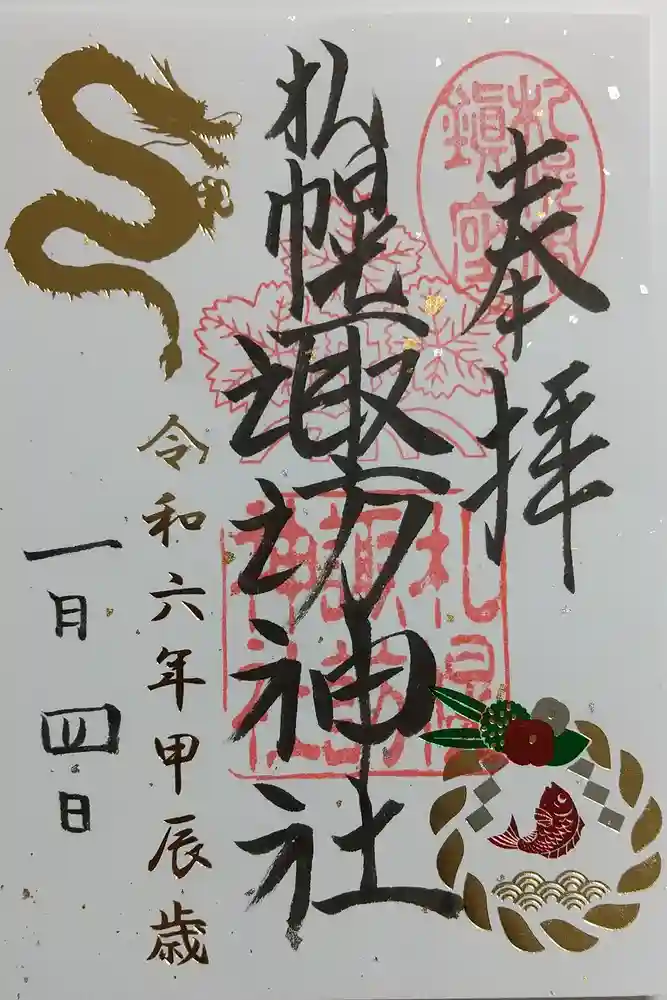 奉拝
札幌諏訪神社
令和六年甲辰歳
一月四日
札幌諏訪神社